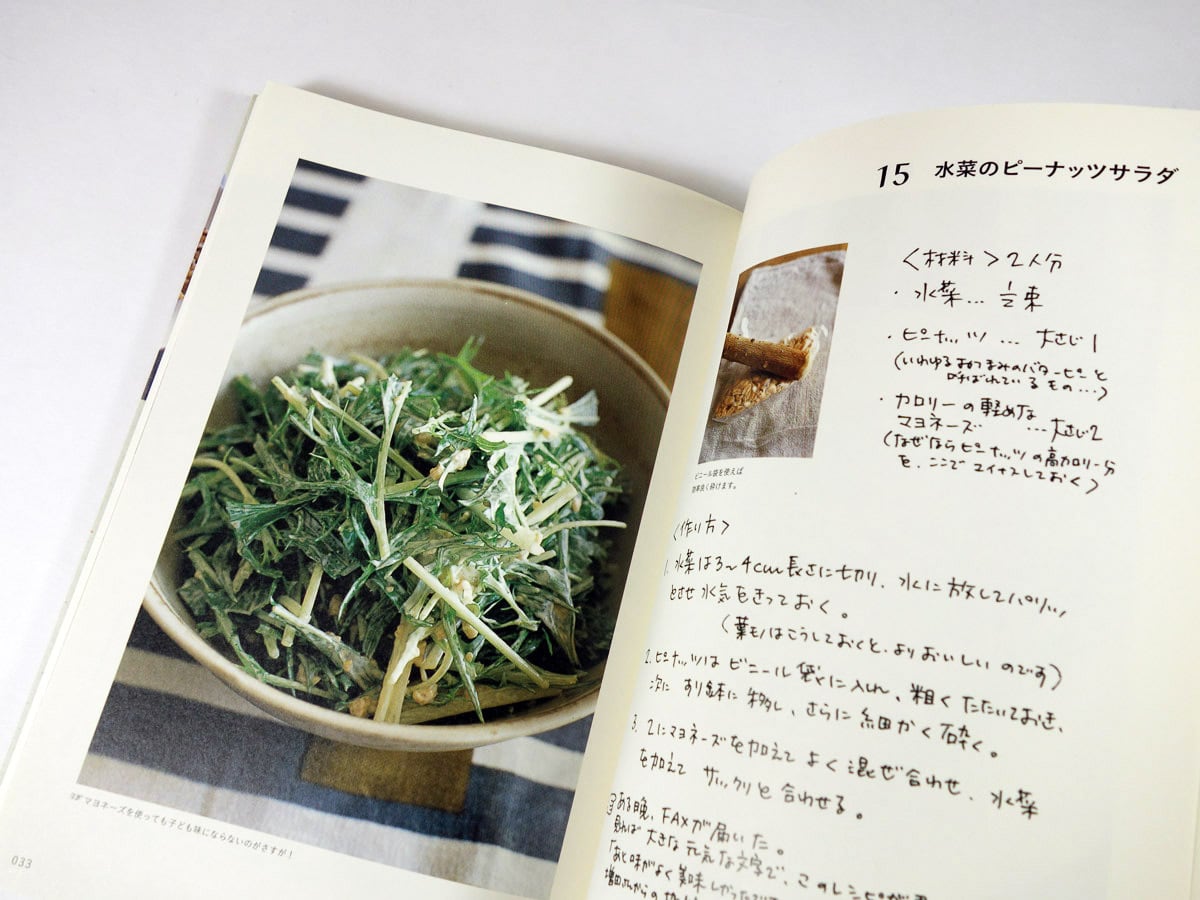 マヨネーズを使っても子ども味にならないのがさすが！
033
15 水菜のピーナッツサラダ
ビニール袋を使えば
効率良く砕けます。
〈材料〉2人分
・水菜… 1/2束
・ピーナッツ … 大さじ1
(いわゆるおつまみのバターピーと
呼ばれているもの…)
・カロリーの軽めな
マヨネーズ …大さじ2
(なぜならピーナッツの高カロリー分
を、ここでマイナスしておく)
〈作り方〉
1. 水菜は3〜4cm長さに切り、水に放してパリッ
とさせ水気をきっておく。
(葉モノはこうしておくと、よりおいしいのです)
2. ピーナッツは ビニール袋に入れ、粗くたたいておき、
次に すり鉢に移し、さらに細かく砕く。
3. 2にマヨネーズを加えて よく混ぜ合わせ、水菜
を加えて サックリと合わせる。
ある晩、FAXが届いた。
見れば大きな元気な文字で、このレシピが
「あと味がよく美味しかった